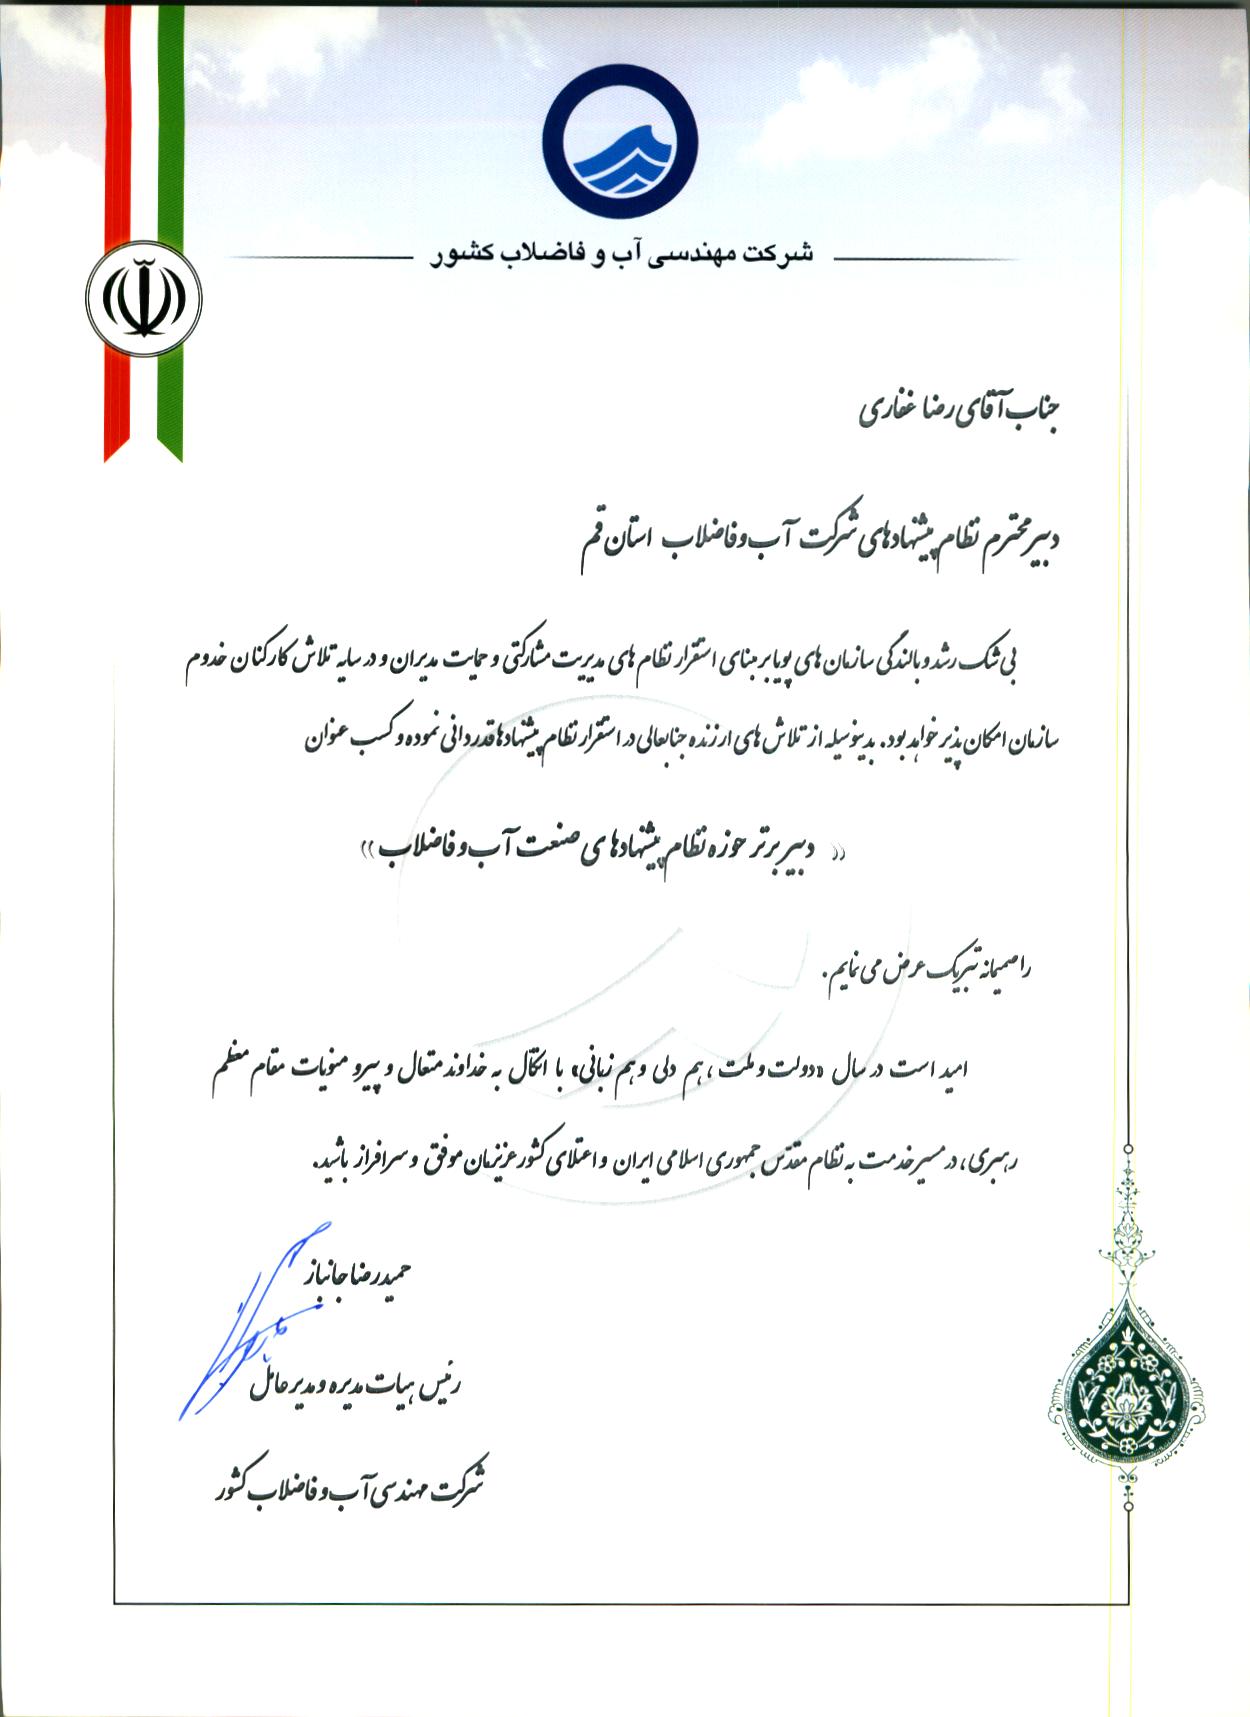 شرکت مهندسی آب و فاضلاب کشور
جناب آقای رضا غفاری
دبیر محترم نظام پیشنهادهای شرکت آب و فاضلاب استان قم
بی شک رشد و بالندگی سازمان های پویا بر مبنای استقرار نظام های مدیریت مشارکتی و حمایت مدیران و در سایه تلاش کارکنان خدوم
سازمان امکان پذیر خواهد بود. بدینوسیله از تلاش های ارزنده جنابعالی در استقرار نظام پیشنهادها قدردانی نموده و کسب عنوان
« دبیر برتر حوزه نظام پیشنهادهای صنعت آب و فاضلاب »
را صمیمانه تبریک عرض می نمایم.
امید است در سال «دولت و ملت، هم دلی و هم زبانی» با اتکال به خداوند متعال و پیرو منویات مقام معظم
رهبری، در مسیر خدمت به نظام مقدس جمهوری اسلامی ایران و اعتلای کشور عزیزمان موفق و سرافراز باشید.
حمیدرضا جانباز
رئیس هیات مدیره و مدیرعامل
شرکت مهندسی آب و فاضلاب کشور